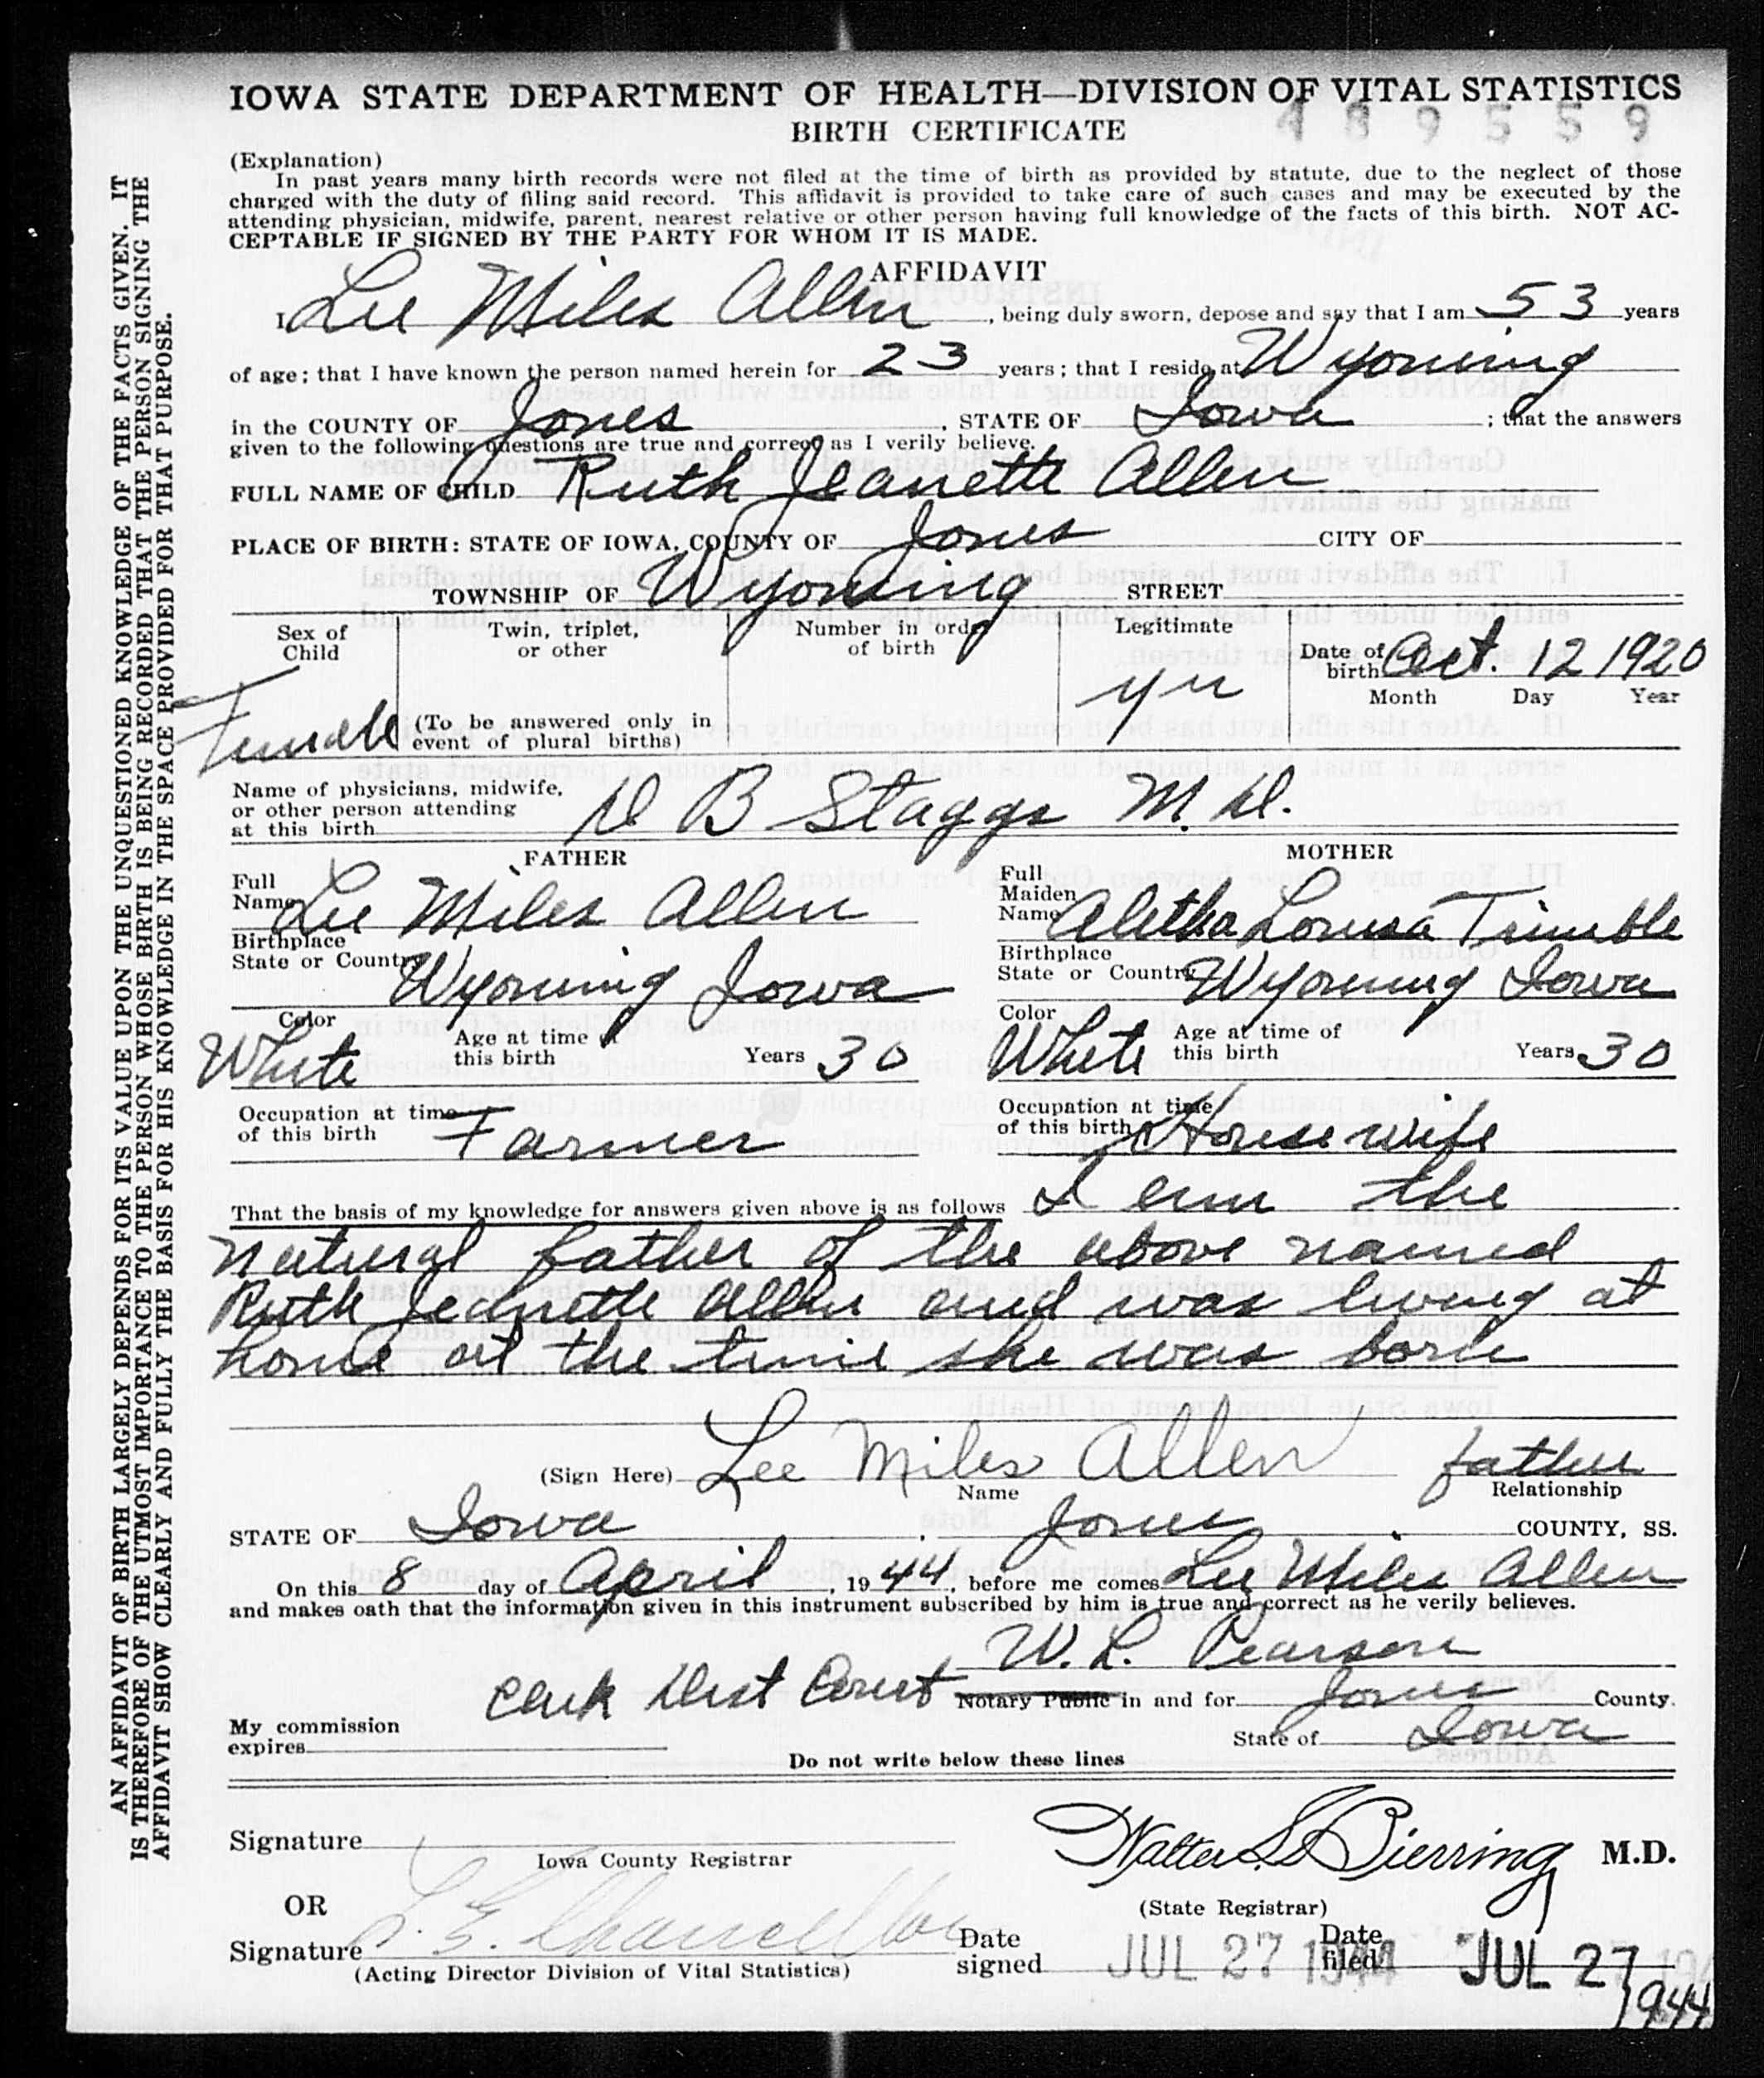 IOWA STATE DEPARTMENT OF HEALTH—DIVISION OF VITAL STATISTICS
BIRTH CERTIFICATE
489559
(Explanation)
In past years many birth records were not filed at the time of birth as provided by statute, due to the neglect of those
charged with the duty of filing said record. This affidavit is provided to take care of such cases and may be executed by the
attending physician, midwife, parent, nearest relative or other person having full knowledge of the facts of this birth. NOT AC-
CEPTABLE IF SIGNED BY THE PARTY FOR WHOM IT IS MADE.
AFFIDAVIT
I Lee Miles Allen, being duly sworn, depose and say that I am 53 years
of age; that I have known the person named herein for 23 years; that I reside at Wyoming
in the COUNTY OF Jones, STATE OF Iowa; that the answers
given to the following questions are true and correct as I verily believe.
FULL NAME OF CHILD Ruth Jeanette Allen
PLACE OF BIRTH: STATE OF IOWA, COUNTY OF Jones CITY OF
TOWNSHIP OF Wyoming STREET
Sex of Child Female
Twin, triplet, or other
(To be answered only in event of plural births)
Number in order of birth
Legitimate yes
Date of birth Oct. 12 1920
Month Day Year
Name of physicians, midwife,
or other person attending
at this birth D B Staggs M.D.
FATHER
Full Name Lee Miles Allen
Birthplace State or Country Wyoming Iowa
Color White Age at time of this birth Years 30
Occupation at time of this birth Farmer
MOTHER
Full Maiden Name Aletha Louisa Trimble
Birthplace State or Country Wyoming Iowa
Color White Age at time of this birth Years 30
Occupation at time of this birth Housewife
That the basis of my knowledge for answers given above is as follows I am the
natural father of the above named
Ruth Jeanette Allen and was living at
home at the time she was born
(Sign Here) Lee Miles Allen father
Name Relationship
STATE OF Iowa, Jones COUNTY, SS.
On this 8 day of April, 1944, before me comes Lee Miles Allen
and makes oath that the information given in this instrument subscribed by him is true and correct as he verily believes.
W. L. Pearson
Clerk Dist Court Notary Public in and for Jones County.
My commission expires State of Iowa
Do not write below these lines
Signature
Iowa County Registrar
Walter L Bierring M.D.
(State Registrar)
OR
Signature L. E. Chancellor
(Acting Director Division of Vital Statistics)
Date signed JUL 27 1944
Date filed JUL 27 1944
AN AFFIDAVIT OF BIRTH LARGELY DEPENDS FOR ITS VALUE UPON THE UNQUESTIONED KNOWLEDGE OF THE FACTS GIVEN. IT
IS THEREFORE OF THE UTMOST IMPORTANCE TO THE PERSON WHOSE BIRTH IS BEING RECORDED THAT THE PERSON SIGNING THE
AFFIDAVIT SHOW CLEARLY AND FULLY THE BASIS FOR HIS KNOWLEDGE IN THE SPACE PROVIDED FOR THAT PURPOSE.